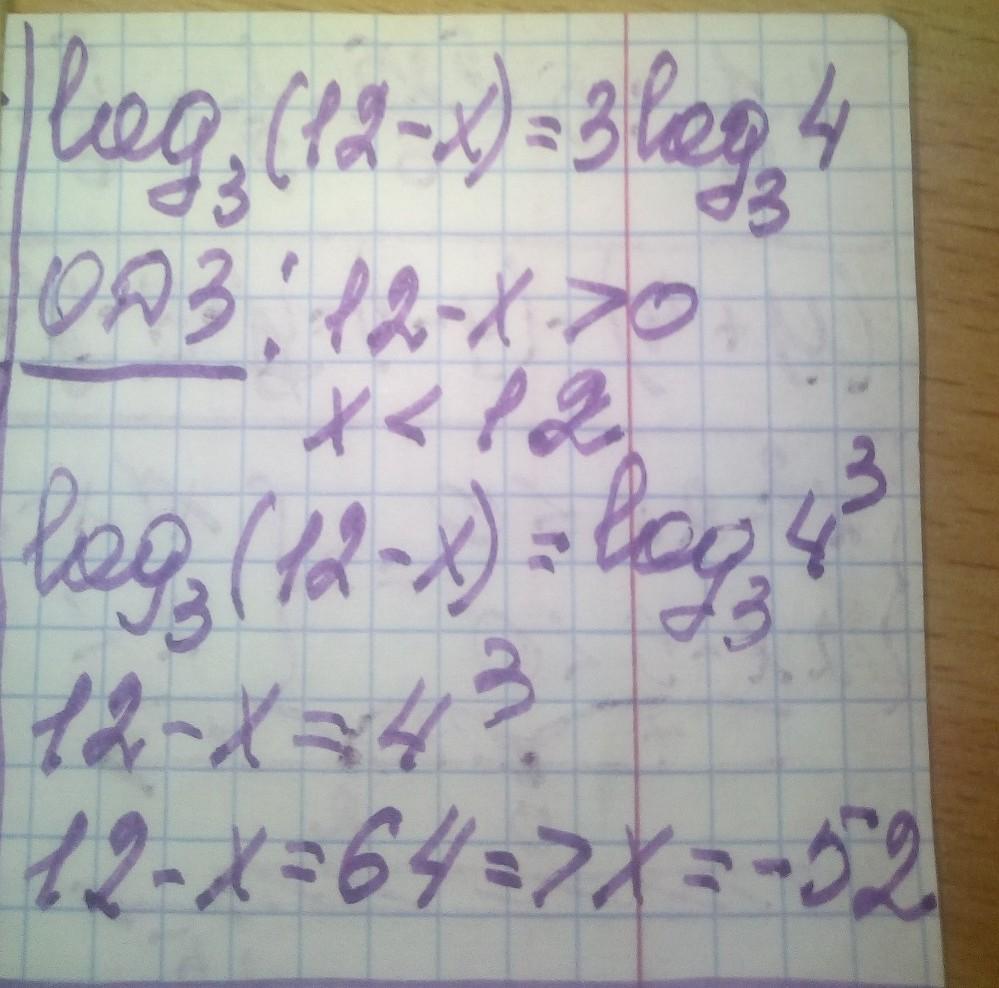 log₃(12-x)=3log₃4
ОДЗ: 12-x>0
x<12
log₃(12-x)=log₃4³
12-x=4³
12-x=64=>x=-52